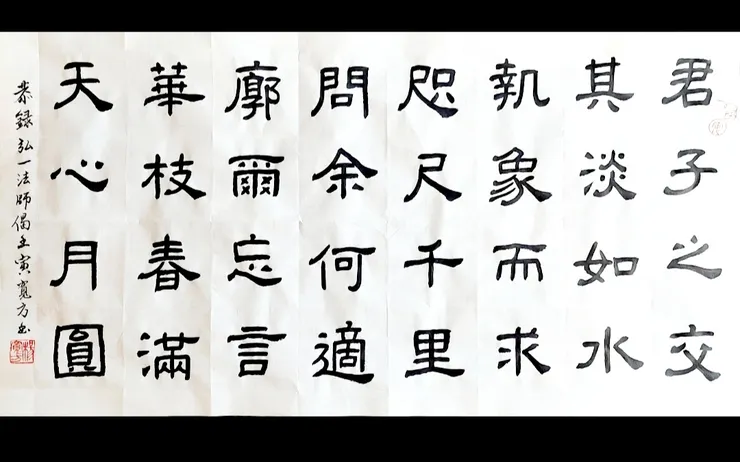 君子之交
其淡如水
執象而求
咫尺千里
問余何適
廓爾忘言
華枝春滿
天心月圓
恭録弘一法師偈壬寅寬方书